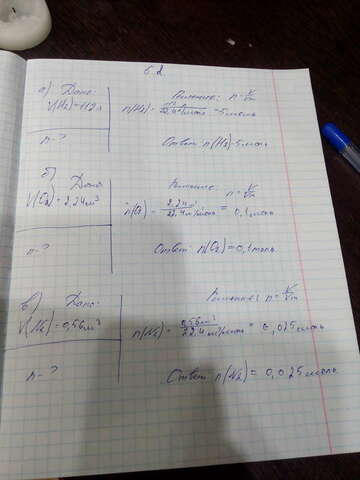 6.2
а) Дано:
V(H₂)=112л
n-?
Решение: n=V/Vm
n(H₂)= /22,4л/моль =5моль
Ответ: n(H₂)=5моль
б) Дано:
V(O₂)=2,24м³
n-?
Решение: n=V/Vm
n(O₂)= 2,24м³/22,4м³/моль = 0,1моль
Ответ: n(O₂)=0,1моль
в) Дано:
V(N₂)=0,56м³
n-?
Решение: n=V/Vm
n(N₂)= 0,56м³/22,4м³/моль = 0,025моль
Ответ: n(N₂)=0,025моль